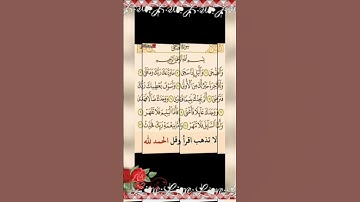 بِسْمِ اللَّهِ الرَّحْمَٰنِ الرَّحِيمِ
وَالضُّحَىٰ وَاللَّيْلِ إِذَا سَجَىٰ مَا وَدَّعَكَ رَبُّكَ وَمَا قَلَىٰ
وَلَلْآخِرَةُ خَيْرٌ لَّكَ مِنَ الْأُولَىٰ وَلَسَوْفَ يُعْطِيكَ رَبُّكَ
فَتَرْضَىٰ أَلَمْ يَجِدْكَ يَتِيمًا فَآوَىٰ وَوَجَدَكَ ضَالًّا فَهَدَىٰ
وَوَجَدَكَ عَائِلًا فَأَغْنَىٰ فَأَمَّا الْيَتِيمَ فَلَا تَقْهَرْ
وَأَمَّا السَّائِلَ فَلَا تَنْهَرْ وَأَمَّا بِنِعْمَةِ رَبِّكَ فَحَدِّثْ
لا تذهب اقرأ وقل الحمد لله